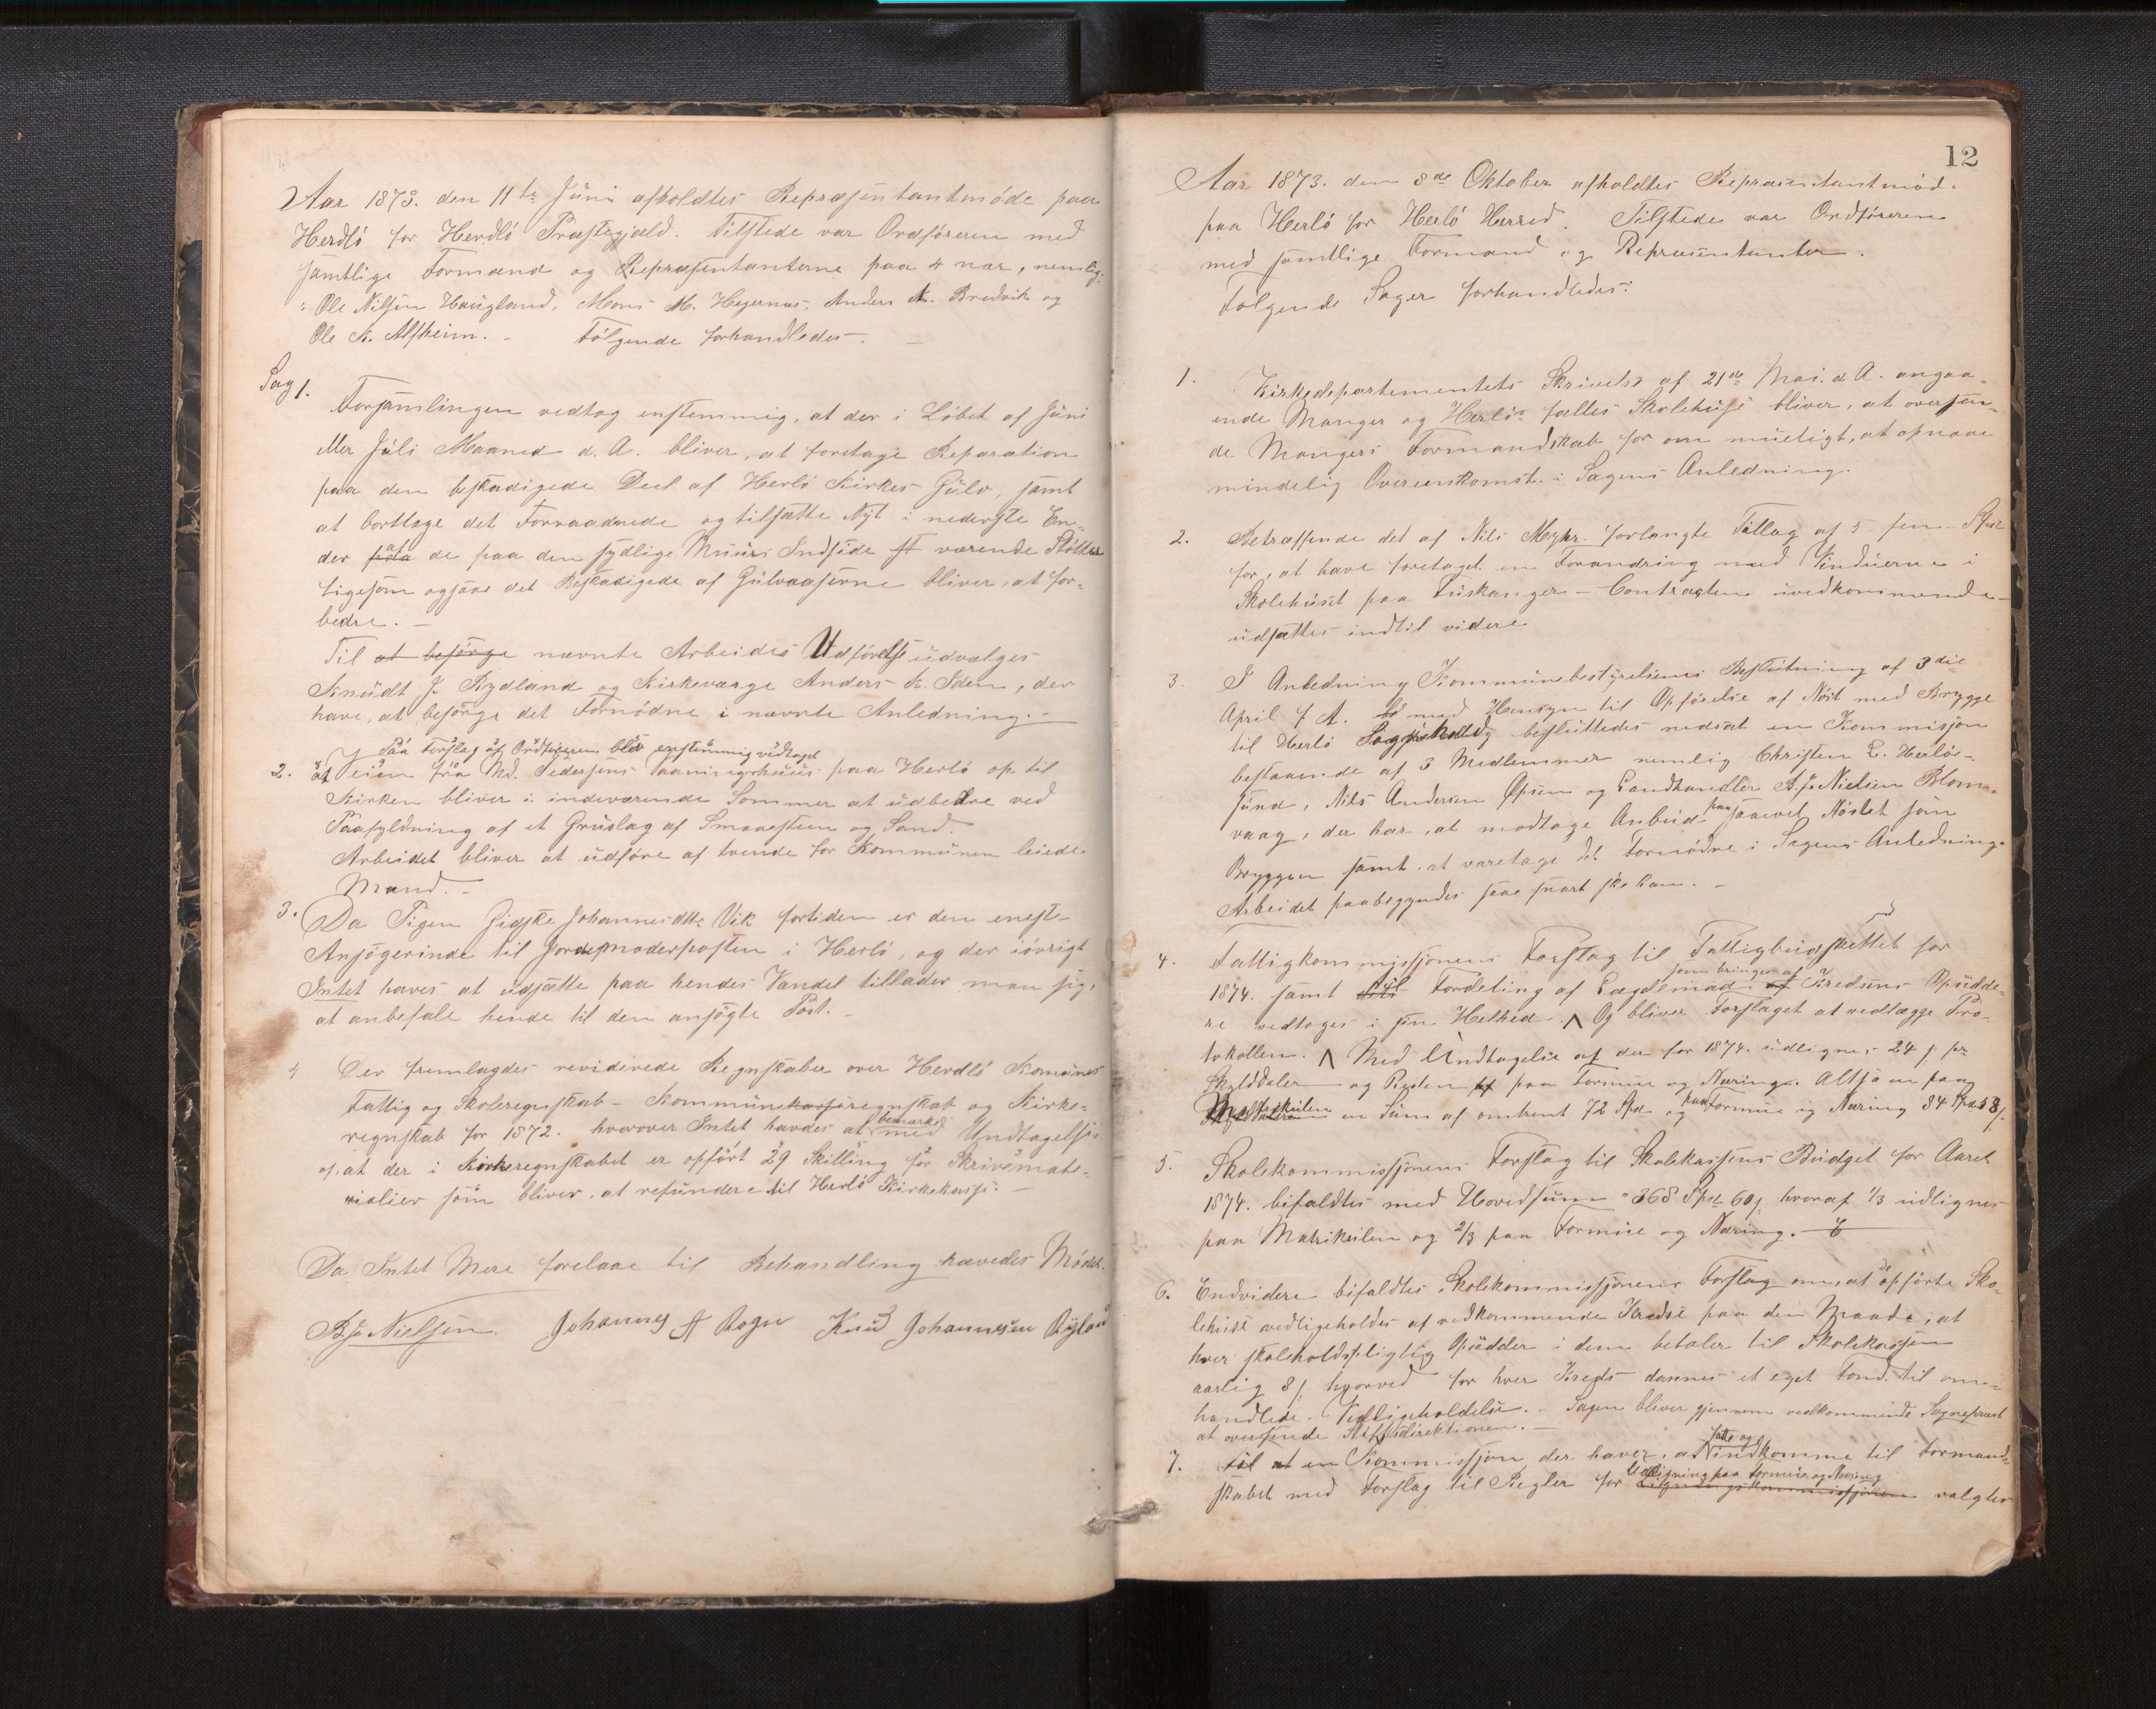 Aar 1873. den 11te Juni afholdtes Repræsentantmøde paa
Herdlø for Herdlø Præstegjæld. Tilstede var Ordføreren med
samtlige Formænd og Repræsentanterne paa 4 nær, nemlig:
Ole Nilsen Haugland, Mons M. Hegernæs, Anders A. Bredvik og
Ole N. Alfheim. - Følgende forhandledes. -
Sag 1.
Forsamlingen vedtog enstemmig, at der i Løbet af Juni
eller Juli Maaned d. A. bliver, at foretage Reparation
paa den beskadigede Deel af Herlø Kirkes Gulv, samt
at borttage det Forraadnede og tilsætte Nyt i nederste En-
der paa af de paa den sydlige Muurs Indside værende Støtter
ligesom ogsaa det Beskadigede af Gulvaaserne bliver at for-
bedre. -
Til at besørge nævnte Arbeides Udførelse udvælges
Knudt J. Rydland og Kirkeværge Anders K. Idem, der
have, at besørge det Fornødne i nævnte Anledning. -
Paa Forslag af Ordføreren blev enstemmig vedtaget
2. at Veien fra Md. Pedersens Vaaningshuus paa Herlø op til
Kirken bliver i indeværende Sommer at udbedre ved
Paafyldning af et Gruslag af Smaasteen og Sand.
Arbeidet bliver at udføre af tvende for Kommunen leiede
Mænd. -
3. Da Pigen Gidske Johannesdttr Vik fortiden er den eneste
Ansøgerinde til Jordemoderposten i Herlø, og der iøvrigt
Intet haves at udsætte paa hendes Vandel tillader man sig,
at anbefale hende til den ansøgte Post. -
4 Der fremlagdes reviderede Regnskaber over Herdlø Komunes
Fattig og Skoleregnskab - Kommunekasseregnskab og Kirke-
regnskab for 1872. hvorover Intet havdes at bemærke med Undtagelse
af, at der i Kirkeregnskabet er opført 29 Skilling for Skrivemate-
rialier som bliver, at refundere til Herlø Kirkekasse. -
Da Intet Mere forelaae til Behandling hævedes Mødet.
B J Nielsen. Johannes A Rogn Knud Johannesen Ryland
12
Aar 1873. den 8de Oktober afholdtes Repræsentantmøde
paa Herlø for Herlø Herred. Tilstede var Ordføreren
med samtlige Formænd og Repræsentanter.
Følgende Sager forhandledes:
1. Kirkedepartementets Skrivelse af 21de Mai d. A. angaa-
ende Manger og Herløs fælles Skolehuse bliver, at oversen-
de Mangers Formandskab for om mueligt, at opnaae
mindelig Overeenskomst i Sagens Anledning.
2. Betræffende det af Nils Myhr. forlangte Tillæg af 5 fem Spd
for, at have foretaget en Forandring med Vinduerne i
Skolehuset paa Fuskanger - Contracten uvedkommende -
udsættes indtil videre
3. I Anledning Kommunebestyrelsens Beslutning af 3die
April d. A. med Hensyn til Opførelse af Nøst med Brygge
til Herlø besluttedes nedsat en Kommission
bestaaende af 3 Medlemmer nemlig Christen L. Herløe-
sund, Nils Andersen Opsen og Landhandler B. J. Nielsen Blom-
vaag, der har at modtage Anbud paa saavel Nøstet som
Bryggen samt at varetage det Fornødne i Sagens Anledning.
Arbeidet paabegyndes saa snart ske kan. -
4. Fattigkommissionens Forslag til Fattigbudskettet for
1874. samt til Fordeling af Lægdemad som bringes af Kredsens Opsidde-
re vedtoges i sin Helhed. Og bliver Forslaget at vedlægge Pro-
tokollen. Med Undtagelse af der for 1874. udlignes 24 s. pr
Skylddaler og Resten paa Formue og Næring. Altsaa en paa
Matrikulen en Sum af omtrent 72 Spd og paa Formue og Næring 84 Spd 58 s.
5. Skolekommissionens Forslag til Skolekassens Budget for Aaret
1874. bifaldtes med Hovedsum "368 Spd 60 s. hvoraf 1/3 udlignes
paa Matrikulen og 2/3 paa Formue og Næring.
6. Endvidere bifaldtes Skolekommissionens Forslag om, at de opførte Sko-
lehuse vedligeholdes af vedkommende Kredse paa den Maade, at
hver skoleholdspligtig Opsidder i dem betaler til Skolekassen
aarlig 8 s. hvorved for hver Kreds dannes et eget Fond til om-
handlede Vedligeholdelse. - Sagen bliver gjennem vedkommende Sognepræst
at oversende Stiftsdirektionen. -
7. til at en Kommission der haver, at fatte og indkomme til Formand-
skabet med Forslag til Regler for Udligning paa Formue og Næring Ligningskommissionen valgtes